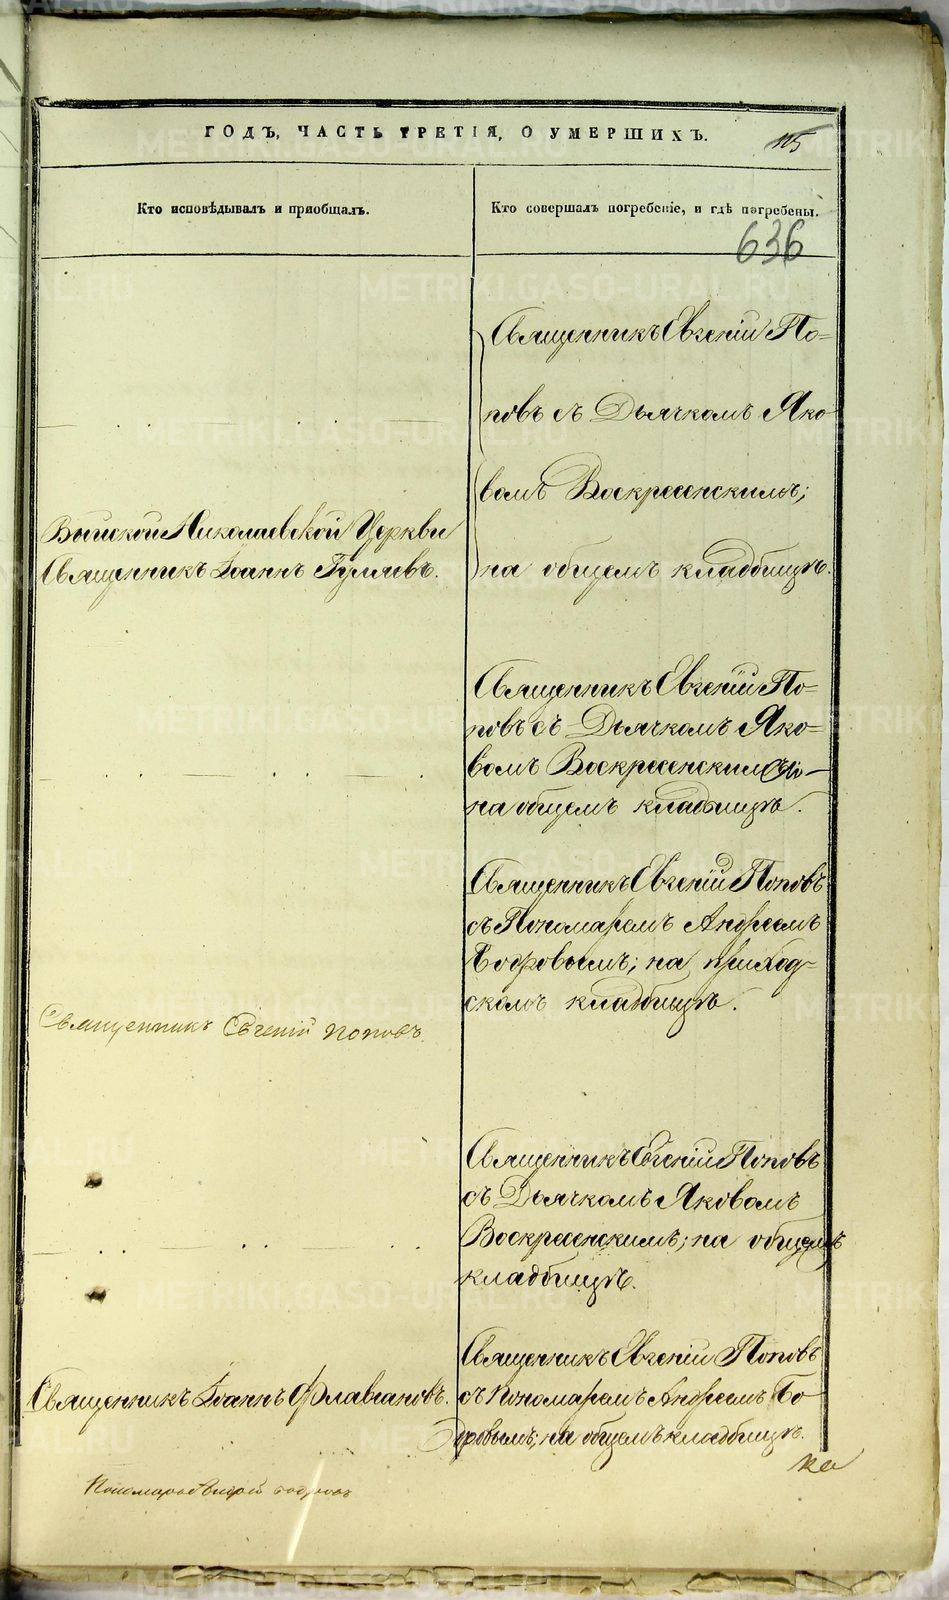 ГОДЪ, ЧАСТЬ ТРЕТІЯ, О УМЕРШИХЪ.
Кто исповѣдывалъ и пріобщалъ.
Кто совершалъ погребеніе, и гдѣ погребены.
636
Священникъ Евгеній По=
повъ съ Дьячкомъ Яко
вомъ Воскресенскимъ;
на общемъ кладбищѣ.
Выйской Николаевской Церкви
Священникъ Іоаннъ Гуляевъ.
Священникъ Евгеній По=
повъ съ Дьячкомъ Яко=
вомъ Воскресенскимъ
на общемъ кладбищѣ.
Священникъ Евгеній Поповъ
съ Пономаремъ Андреемъ
Бодровымъ; на приход-
скомъ кладбищѣ.
Священникъ Евгеній Поповъ.
Священникъ Евгеній Поповъ
съ Дьячкомъ Яковомъ
Воскресенскимъ; на общемъ
кладбищѣ.
Священникъ Іоаннъ Флавіановъ.
Священникъ Евгеній Поповъ
съ Пономаремъ Андреемъ Бо
дровымъ; на общемъ кладбищѣ.
Пономарь Андрей Бодровъ
METRIKI.GASO-URAL.RU